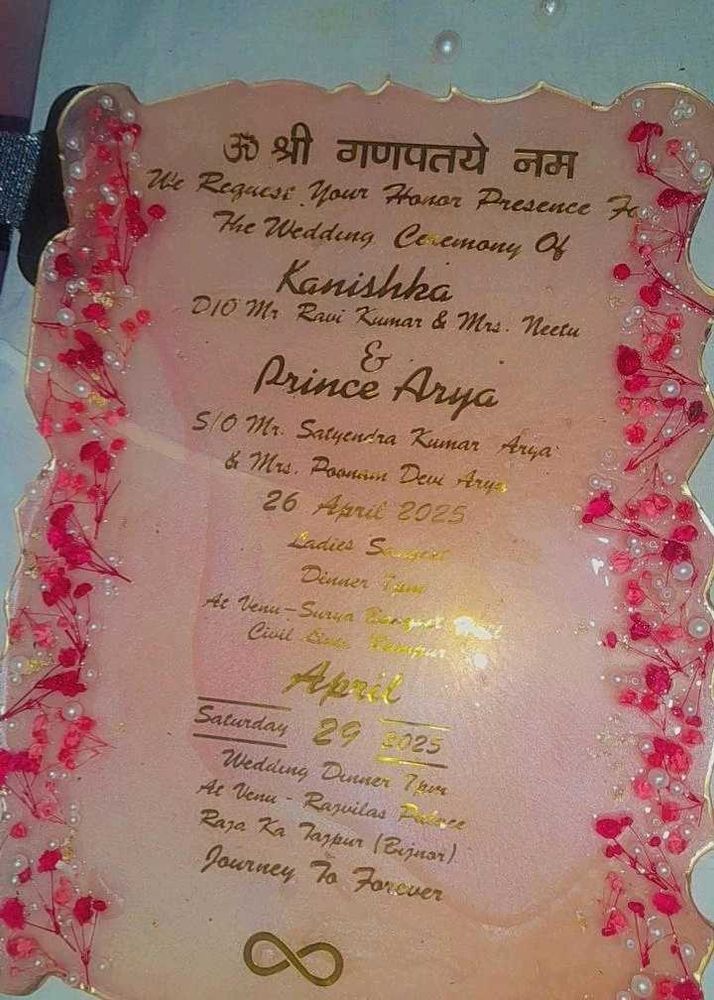 ॐ श्री गणपतये नम
We Request Your Honor Presence Fo
The Wedding Ceremony Of
Kanishka
D/O Mr. Ravi Kumar & Mrs. Neetu
&
Prince Arya
S/O Mr. Satyendra Kumar Arya
& Mrs. Poonam Devi Arya
26 April 2025
Ladies Sangeet
Dinner 7pm
At Venu-Surya Banquet
Civil Rampur
April
Saturday 29 2025
Wedding Dinner 7pm
At Venu - Rajvilas Palace
Raja Ka Tajpur (Bijnor)
Journey To Forever